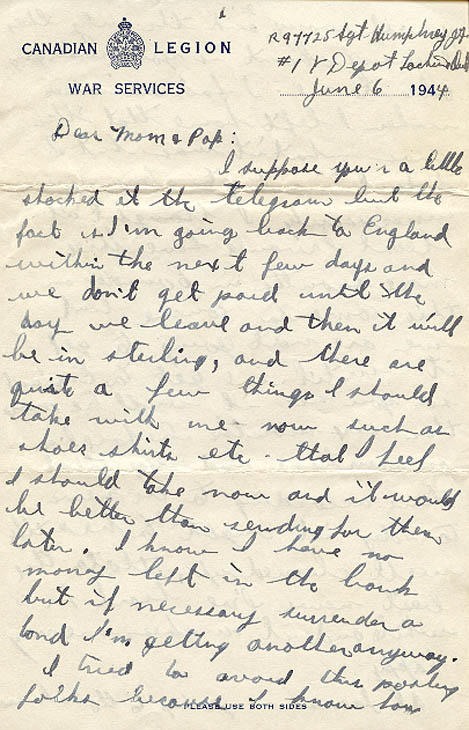 CANADIAN LEGION
WAR SERVICES
R97725 Sgt Humphrey
#1 Y Depot
June 6 1944
Dear Mom & Pop:
I suppose you'r a little
shocked at the telegram but the
fact is I'm going back to England
within the next few days and
we don't get paid until the
day we leave and then it will
be in sterling, and there are
quite a few things I should
take with me now such as
shoes shirts etc that I feel
I should take now and it would
be better than sending for them
later. I know I have no
money left in the bank
but if necessary surrender a
bond I'm getting another anyway.
I tried to avoid this posting
folks because I know how
PLEASE USE BOTH SIDES